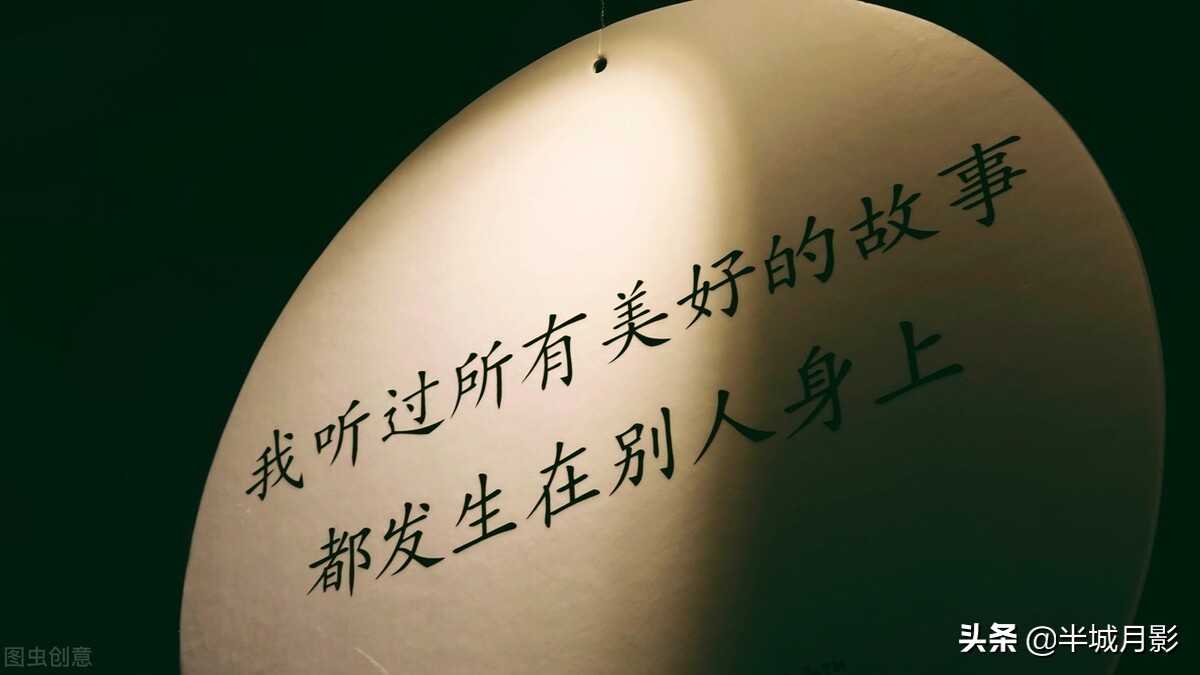 我听过所有美好的故事
都发生在别人身上
头条 @半城月影
图虫创意